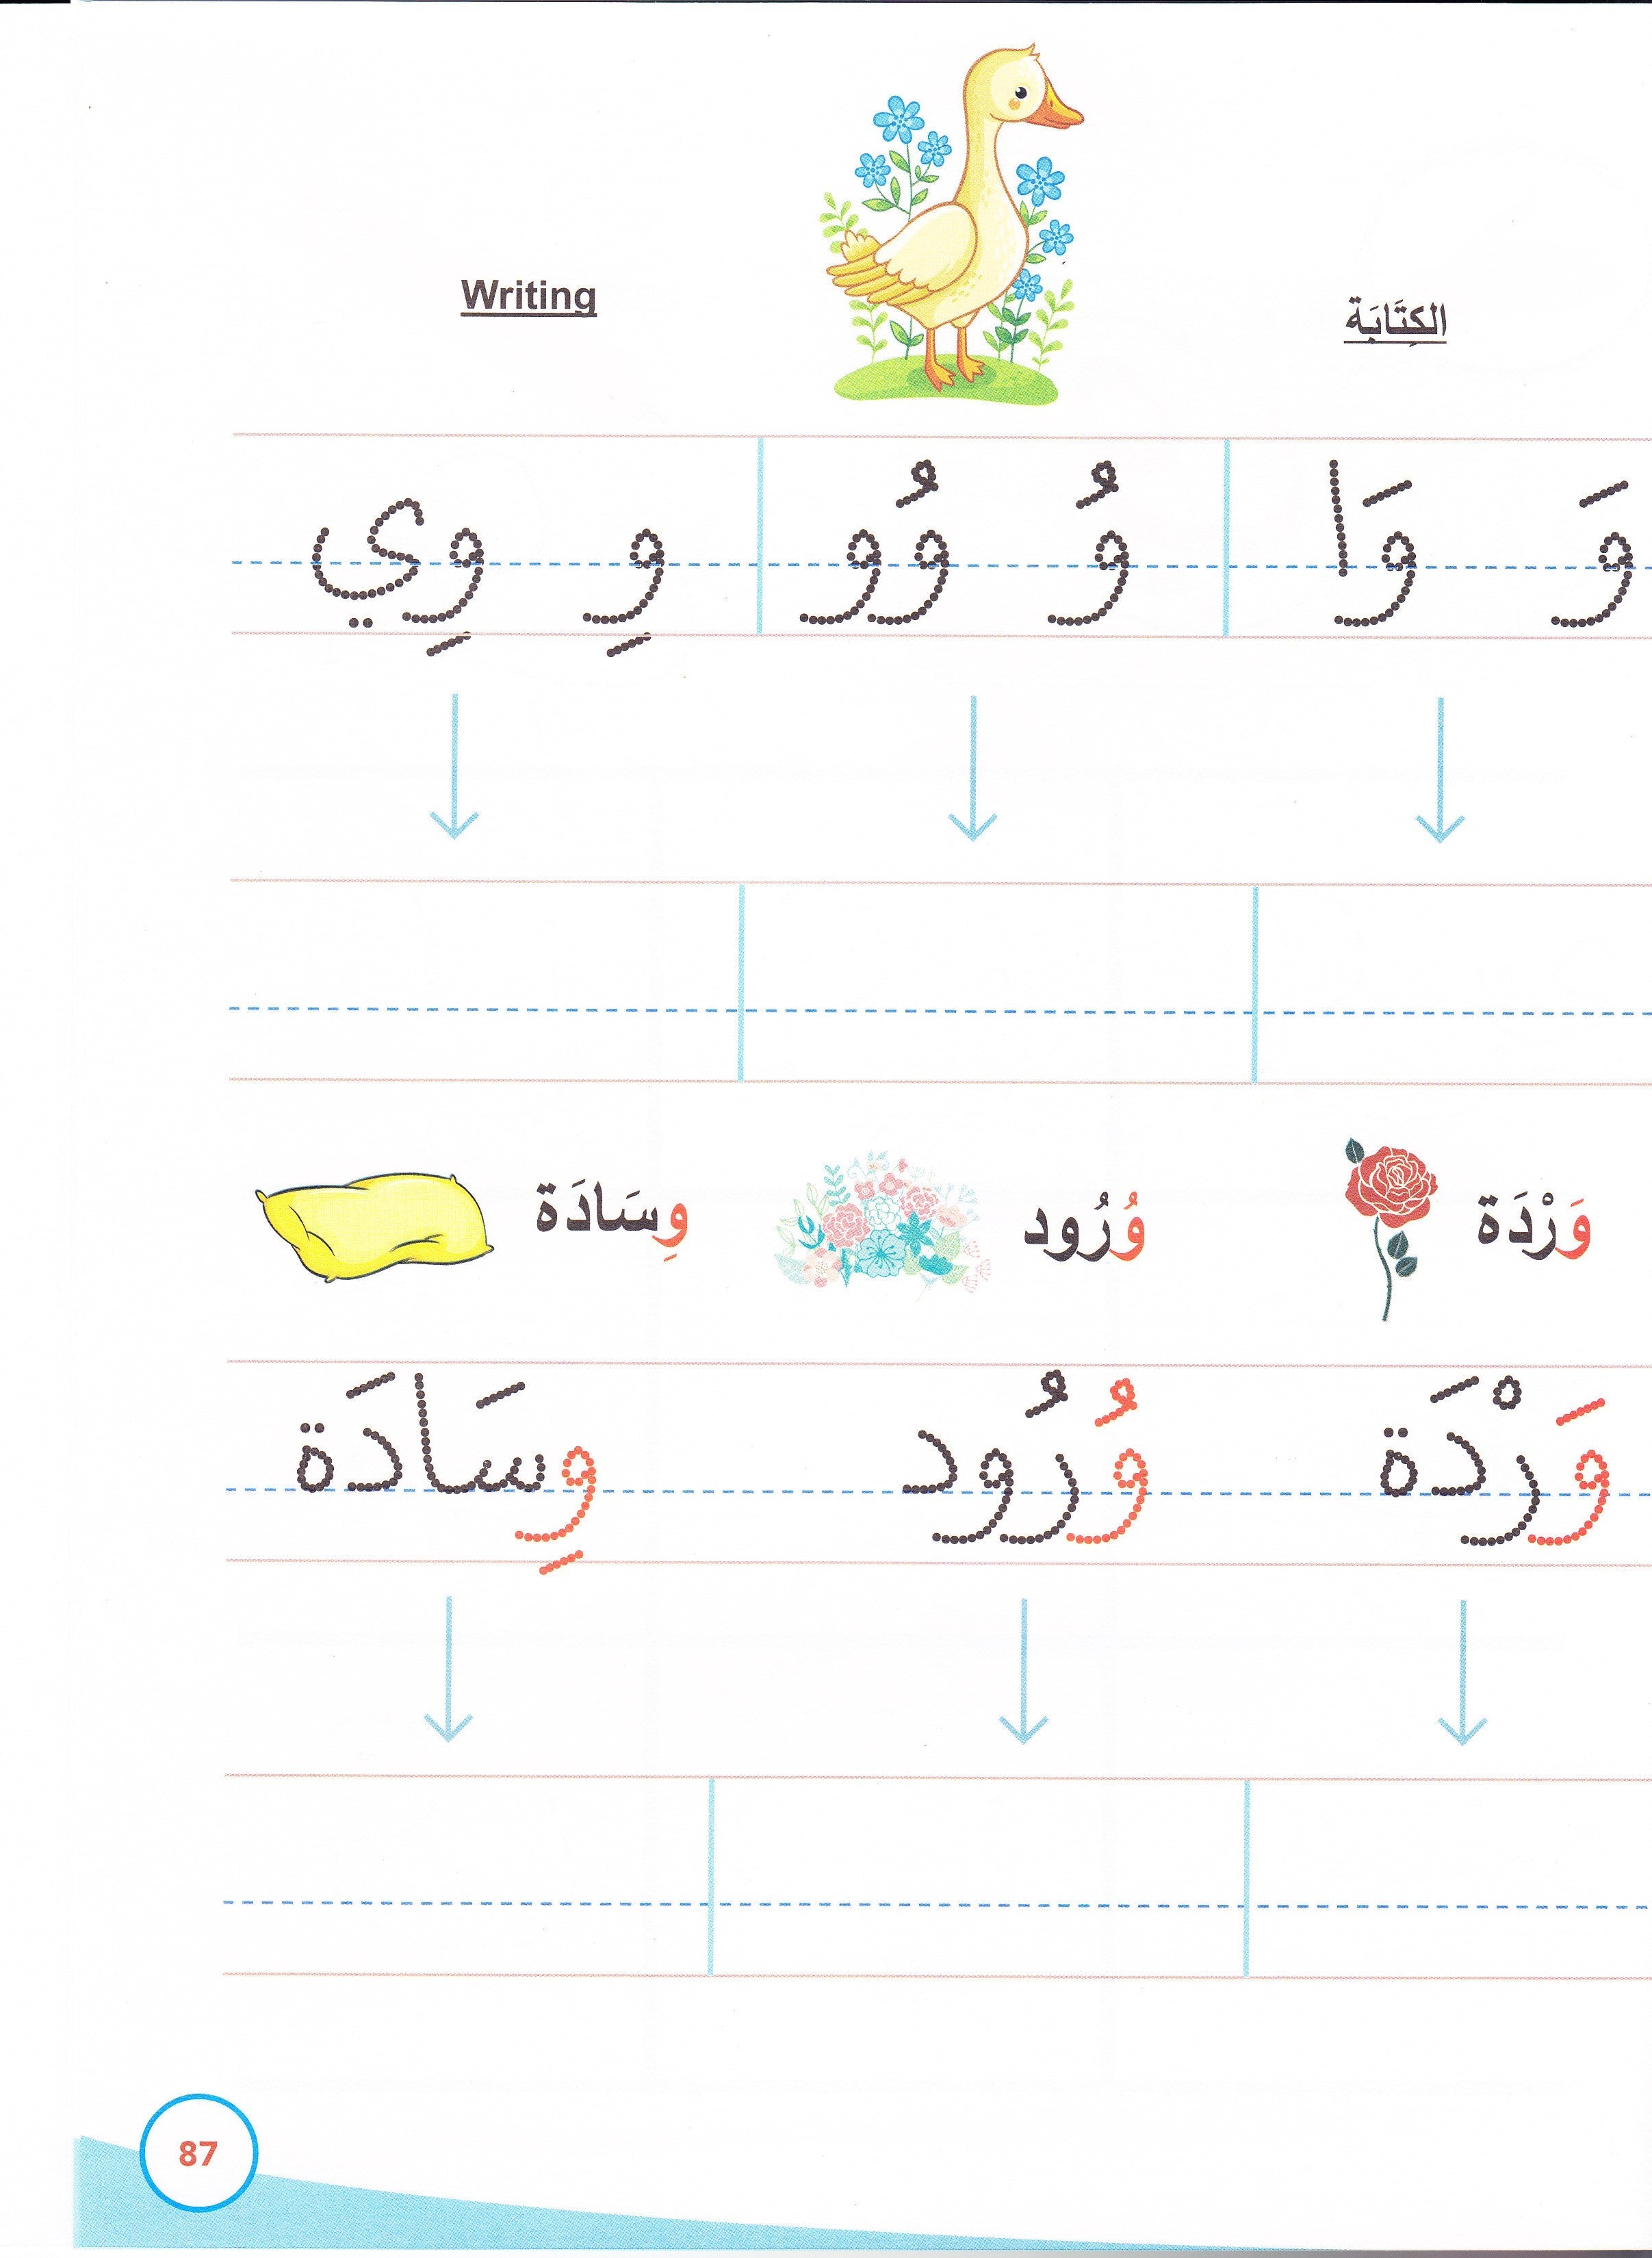 الكِتَابَة
Writing
وَ وَا وُ وُو وِ وِي
وَرْدَة وُرُود وِسَادَة
وَرْدَة وُرُود وِسَادَة
87